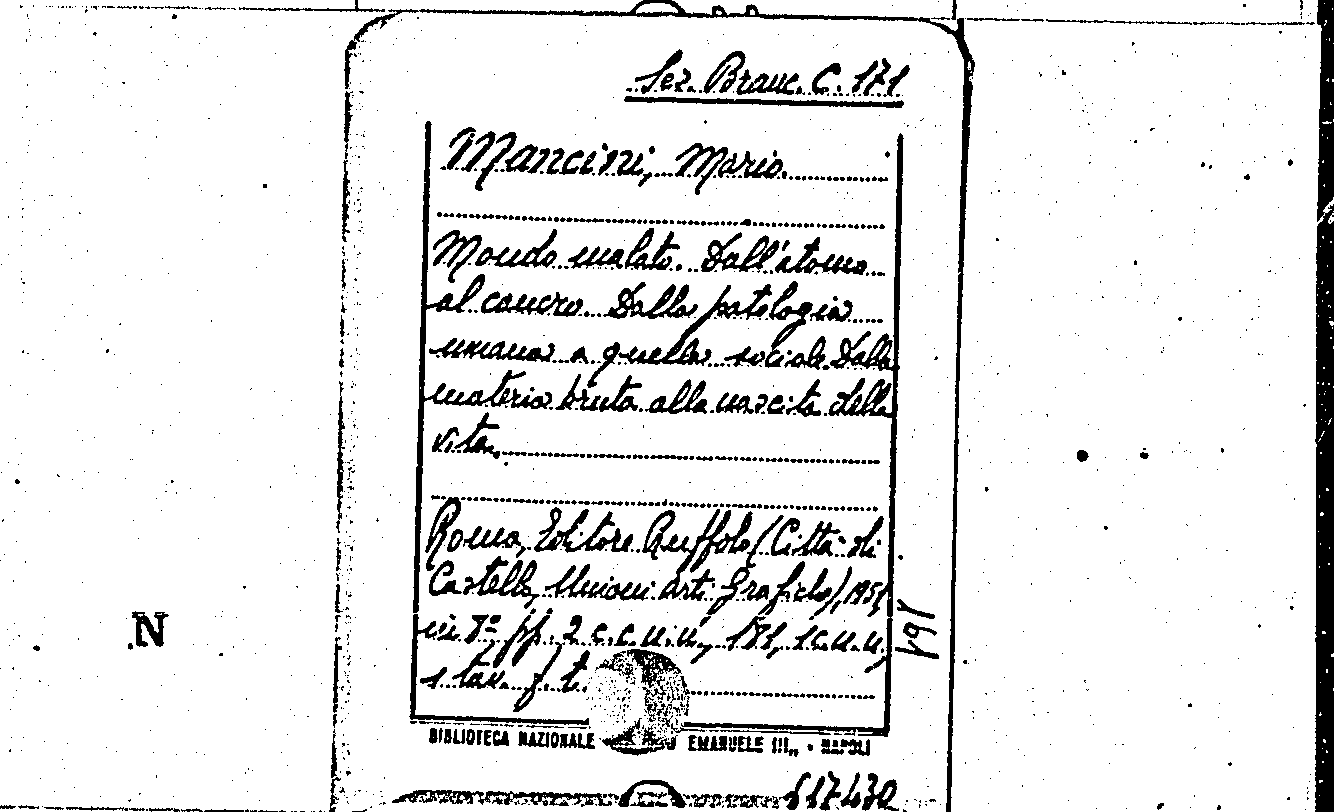 Sez. Brauc. C. 171
Mancini, Mario.
Mondo malato. Dall'atomo
al cancro. Dalla patologia
umana a quella sociale. Dalla
materia bruta alla nascita della
vita.
Roma, Editore Ruffolo (Città di
Castello, Unioni Arti Grafiche), 1951,
in 8º pp. 2 c.c.n.n., 181, 1c.n.n.,
1 tav. f. t.
BIBLIOTECA NAZIONALE EMANUELE III,, - NAPOLI
617430
N